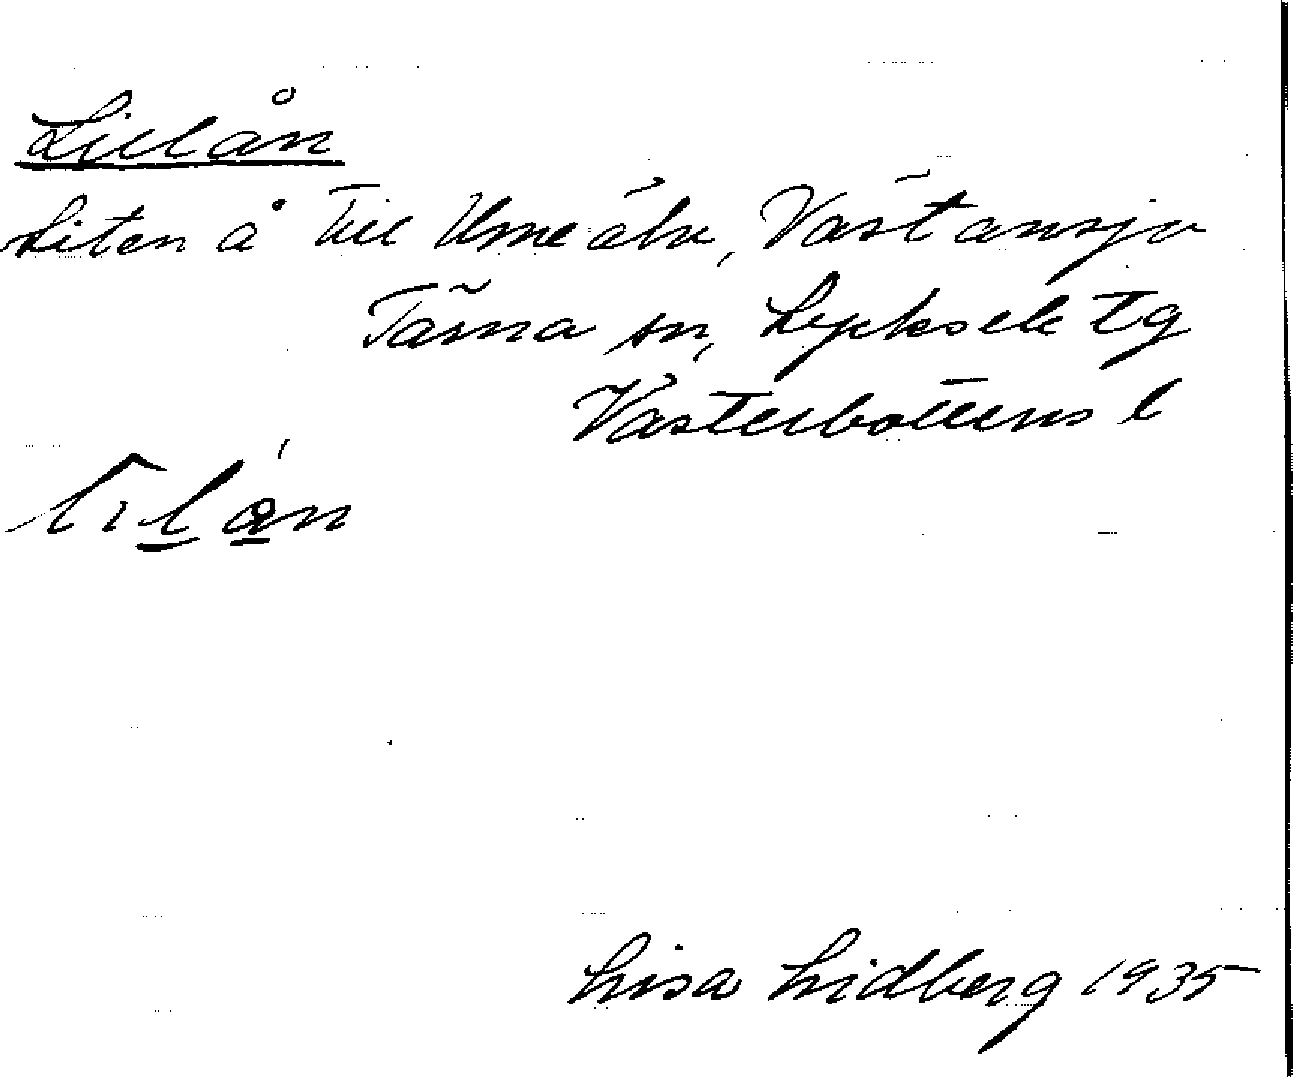 Lillån
Liten å till Umeälv, Västansjö
Tärna sn, Lycksele tg
Västerbottens l
Lisa Lidberg 1935